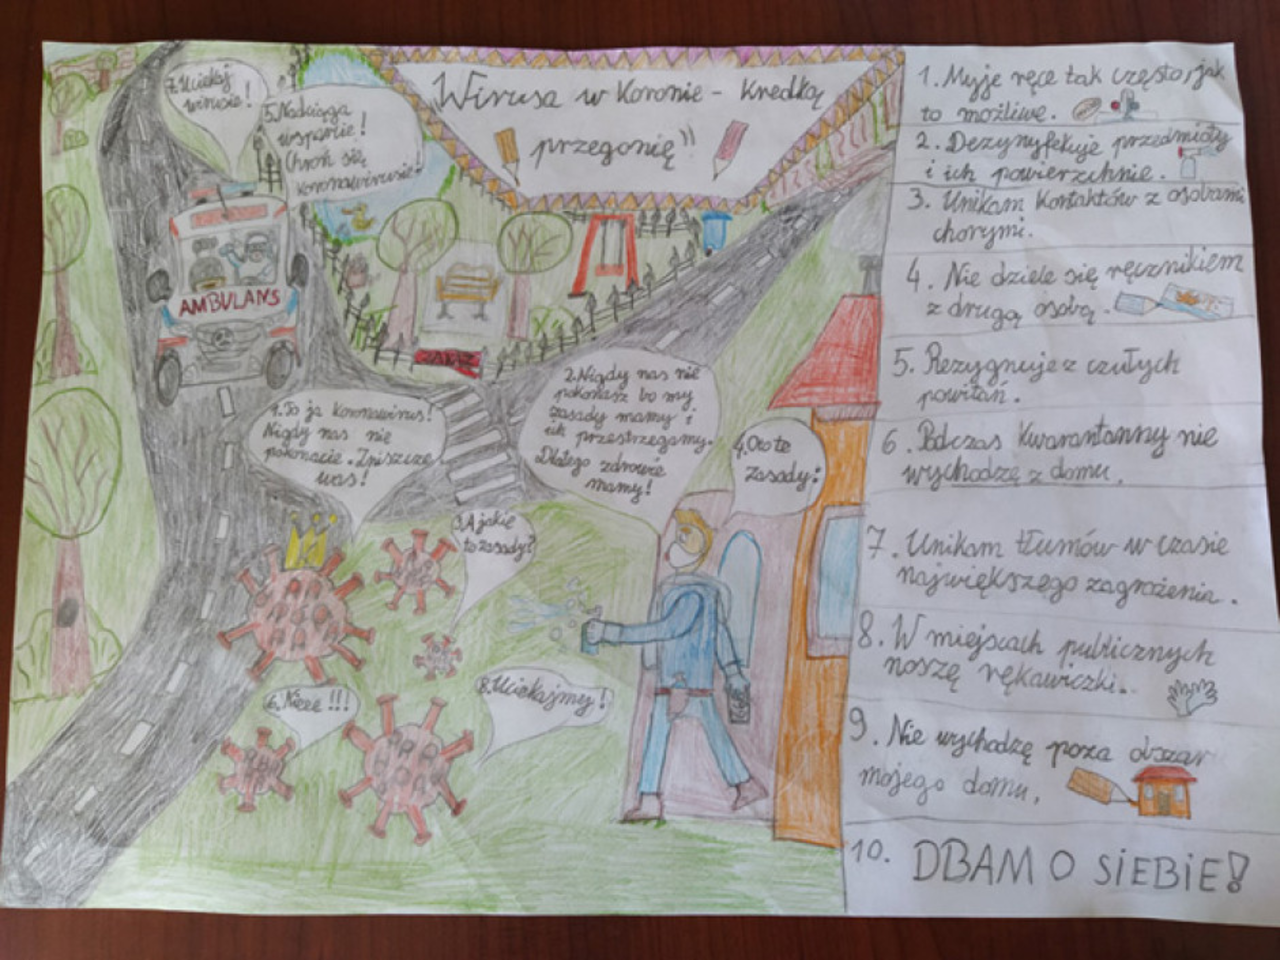 „Wirusa w Koronie - Kredką
przegonię"
7. Uciekaj
wirusie!
5. Nadciąga
wsparcie!
Chroń się
koronawirusie!
AMBULANS
ZAKAZ
1. To ja koronawirus!
Nigdy nas nie
pokonacie. Zniszczę
was!
2. Nigdy nas nie
pokonasz bo my
zasady mamy i
ich przestrzegamy.
Dlatego zdrowie
mamy!
3. A jakie
to zasady?
4. Oto te
zasady:
6. Nieee !!!
8. Uciekajmy!
1. Myję ręce tak często, jak
to możliwe.
2. Dezynyfekuje przedmioty
i ich powierzchnie.
3. Unikam kontaktów z osobami
chorymi.
4. Nie dziele się ręcznikiem
z drugą osobą.
5. Rezygnuje z czułych
powitań.
6. Podczas kwarantanny nie
wychodzę z domu.
7. Unikam tłumów w czasie
największego zagrożenia.
8. W miejscach publicznych
noszę rękawiczki.
9. Nie wychodzę poza obszar
mojego domu.
10. DBAM O SIEBIE!